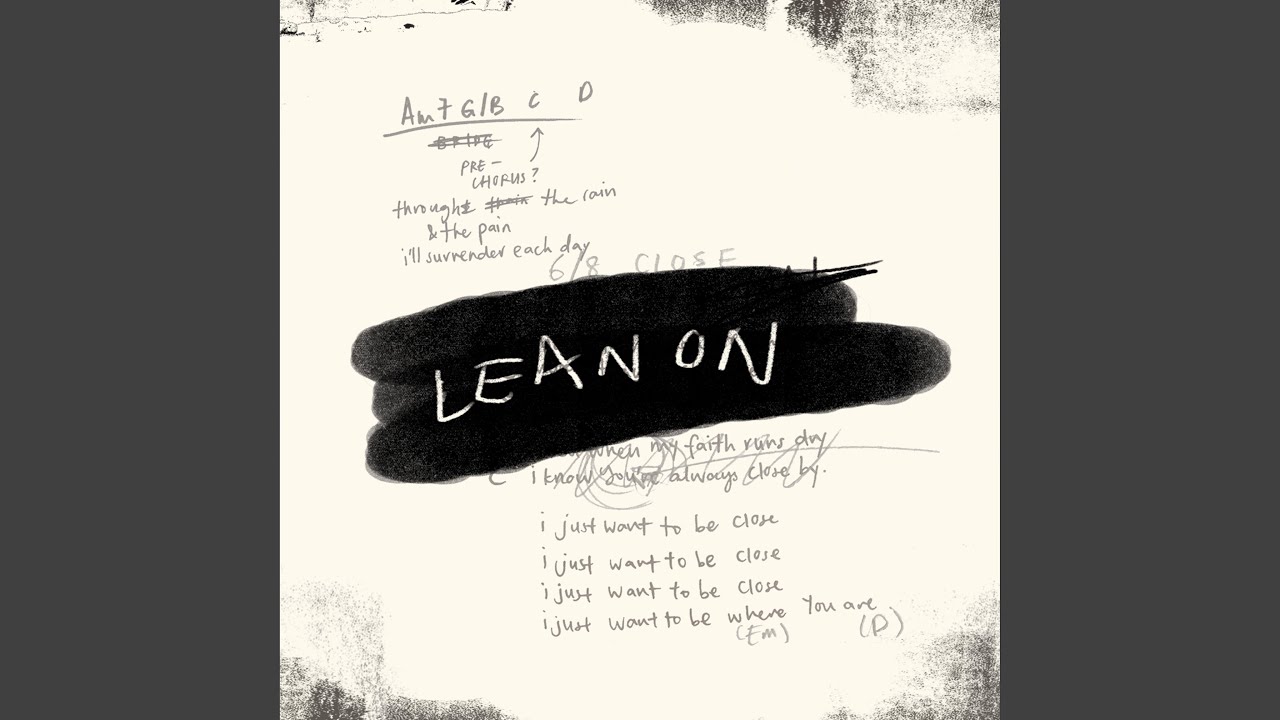 Am7 G/B C D
BRIDGE
PRE-
CHORUS?
through the rain
& the pain
i'll surrender each day
6/8 CLOSE
LEAN ON
when my faith runs dry
C i know you're always close by.
i just want to be close
i just want to be close
i just want to be close
i just want to be where You are
(Em) (D)